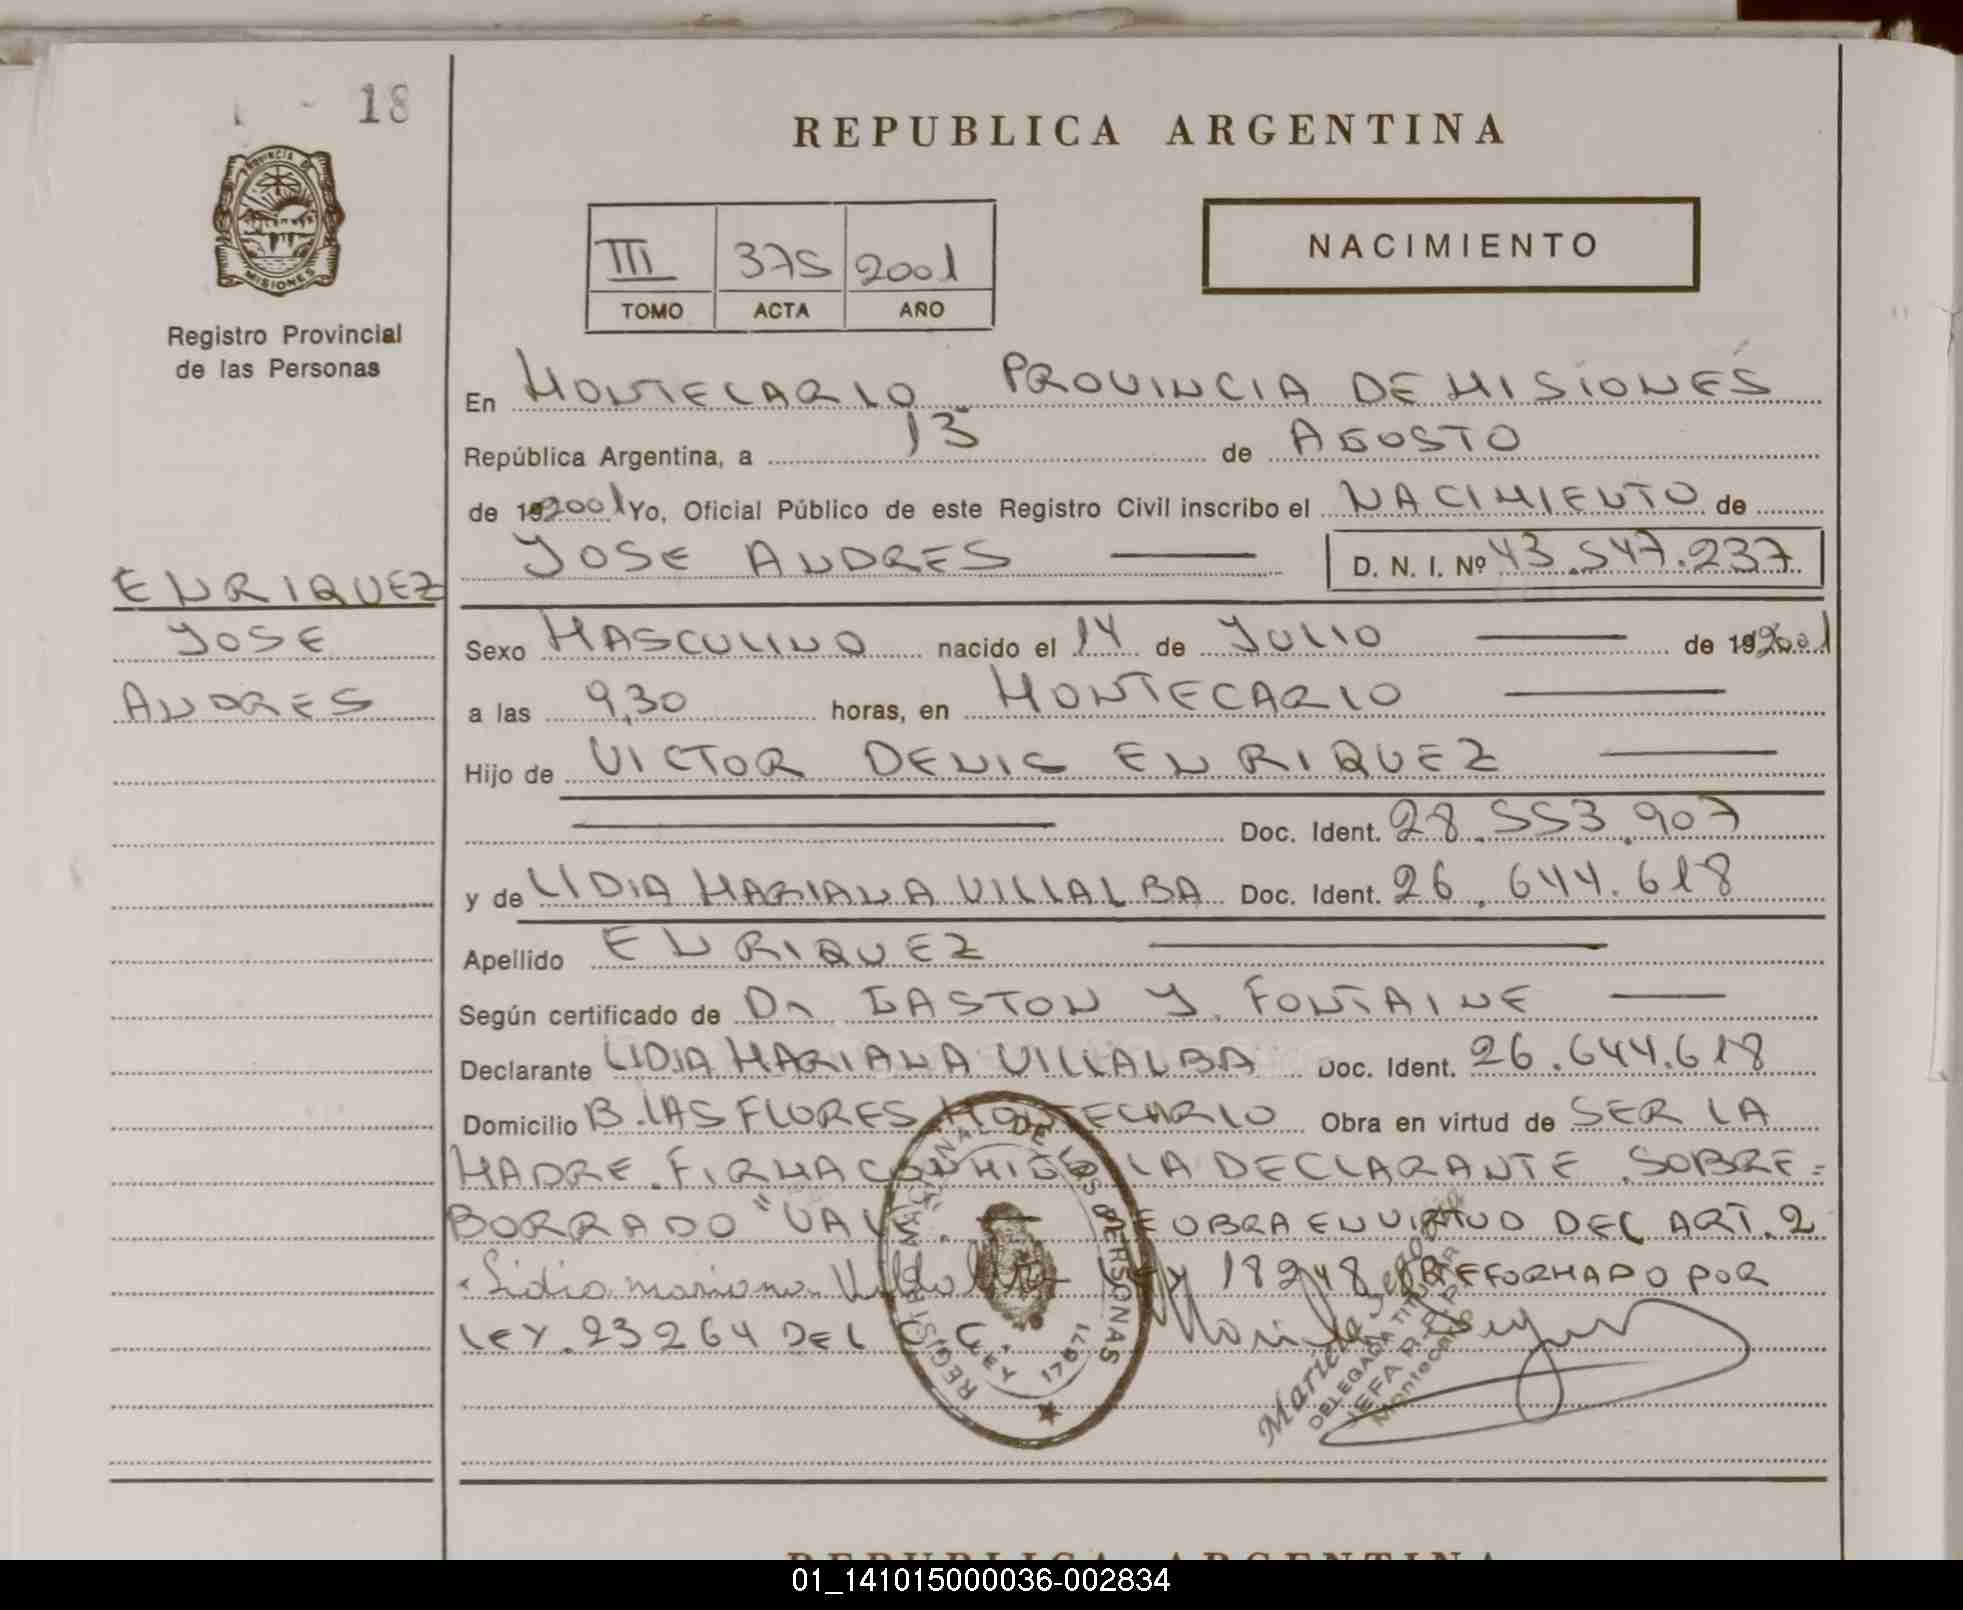 18
REPUBLICA ARGENTINA
PROVINCIA DE MISIONES
Registro Provincial
de las Personas
III 375 2001
TOMO ACTA AÑO
NACIMIENTO
En MONTECARLO PROVINCIA DE MISIONES
República Argentina, a 13 de AGOSTO
de 192001 Yo, Oficial Público de este Registro Civil inscribo el NACIMIENTO de
JOSE ANDRES D. N. I. Nº 43.547.237
ENRIQUEZ
JOSE
ANDRES
Sexo MASCULINO nacido el 14 de JULIO de 192001
a las 9,30 horas, en MONTECARLO
Hijo de VICTOR DENIS ENRIQUEZ
Doc. Ident. 28.553.907
y de LIDIA MARIANA VILLALBA Doc. Ident. 26.644.618
Apellido ENRIQUEZ
Según certificado de Dr GASTON J. FONTAINE
Declarante LIDIA MARIANA VILLALBA Doc. Ident. 26.644.618
Domicilio B. LAS FLORES MONTECARLO Obra en virtud de SER LA
MADRE. FIRMA CONMIGO LA DECLARANTE. SOBRE=
BORRADO "VALE". SE OBRA EN VIRTUD DEL ART. 2
Lidia mariana Villalba LEY 18248 REFORMADO POR
LEY. 23264 DEL C.C.
REGISTRO NACIONAL DE LAS PERSONAS
LEY 17671
DELEGADA TITULAR
JEFA R.P.P.
Montecarlo
REPUBLICA ARGENTINA
01_141015000036-002834